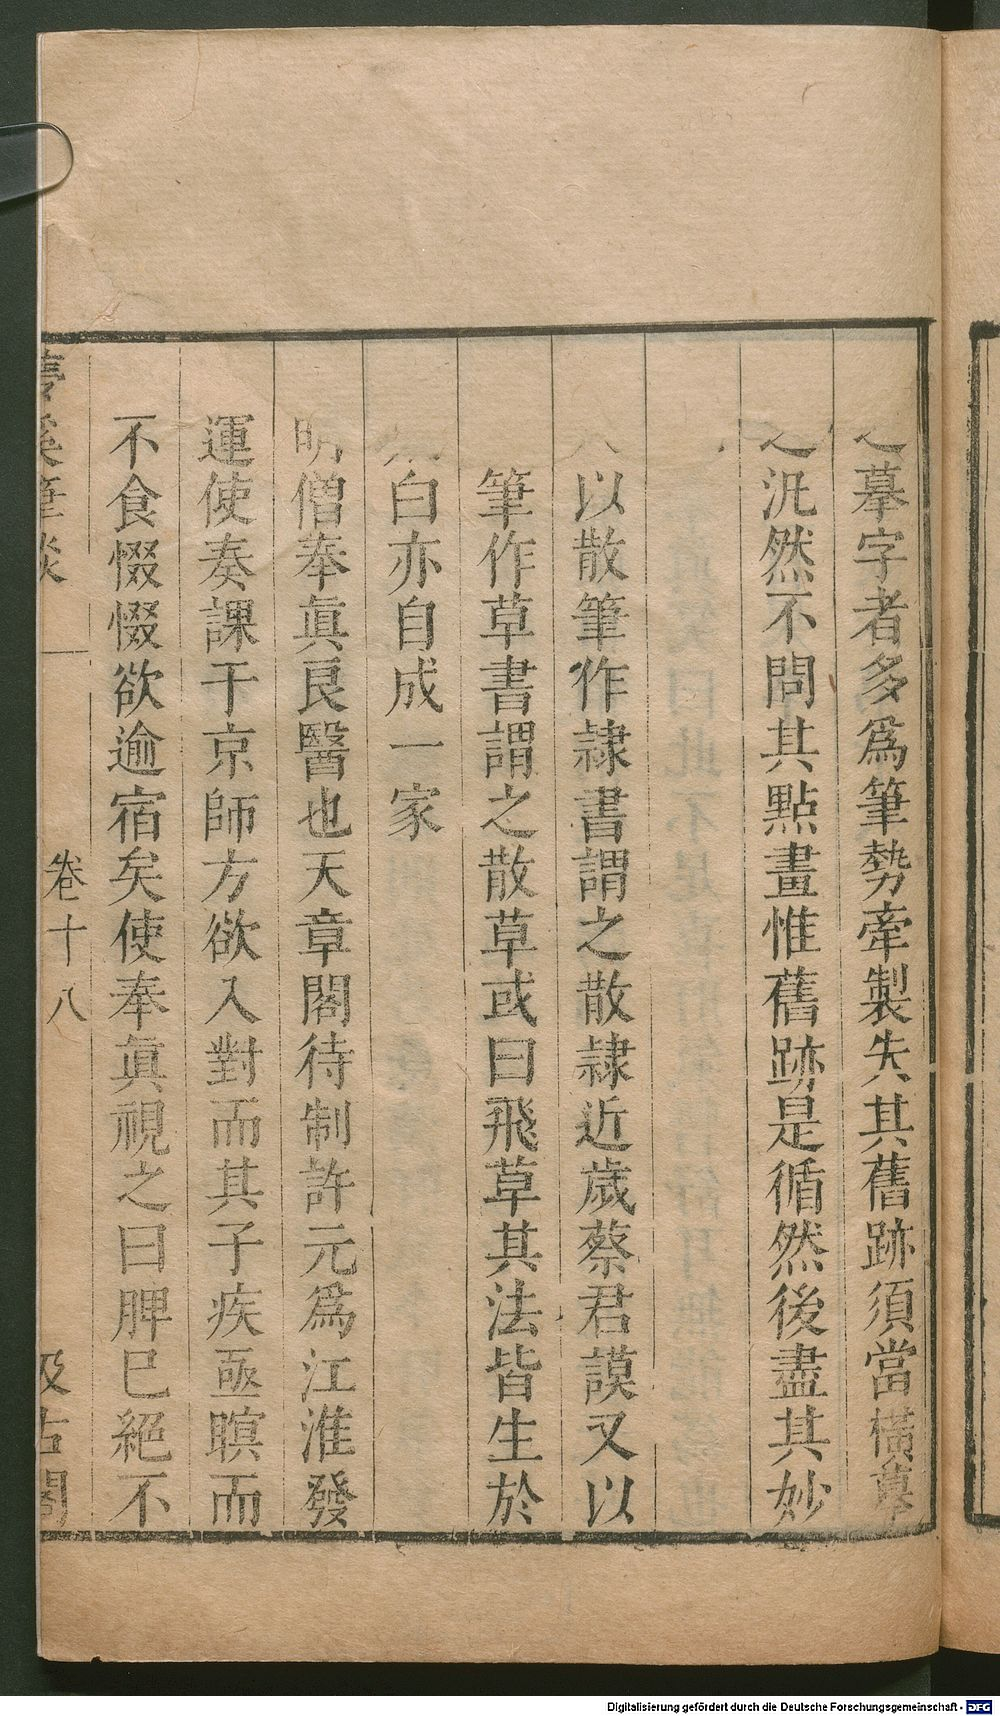 之摹字者多爲筆勢牽製失其舊跡須當橫摹
之汎然不問其點畫惟舊跡是循然後盡其妙
也
以散筆作隷書謂之散隷近歲蔡君謨又以
筆作草書謂之散草或曰飛草其法皆生於
白亦自成一家
明僧奉眞良醫也天章閣待制許元爲江淮發
運使奏課于京師方欲入對而其子疾亟瞑而
不食惙惙欲逾宿矣使奉眞視之曰脾已絕不
夢溪筆談 卷十八 汲古閣
Digitalisierung gefördert durch die Deutsche Forschungsgemeinschaft - DFG